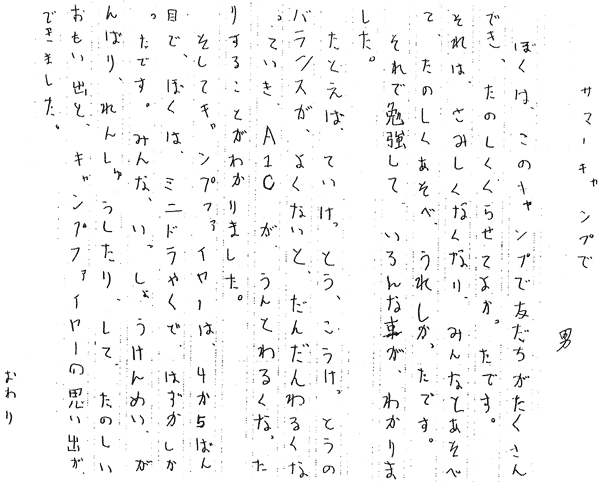 サマーキャンプで
男
ぼくは、このキャンプで友だちがたくさん
でき、たのしくくらせてよかったです。
それは、さみしくなくなり、みんなとあそべ
て、たのしくあそべうれしかったです。
それで勉強して、いろんな事が、わかりま
した。
たとえば、ていけっとう、こうけっとうの
バランスが、よくないと、だんだんわるくな
っていき、A1Cが、うんとわるくなった
りすることがわかりました。
そしてキャンプファイヤーは、4か5ばん
目で、ぼくは、ミニドラやくで、はずかしか
ったです。みんな、いっしょうけんめい、が
んばり、れんしゅうしたり、して、たのしい
おもい出と、キャンプファイヤーの思い出が、
できました。
おわり